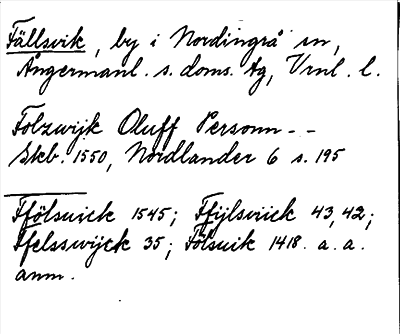 Fällsvik, by i Nordingrå sn,
Ångermanl. s. doms. tg, Vrnl. l.
Folzwijk Oluff Personn - -
Skb. 1550, Nordlander 6 s. 195
Ffölsuick 1545; Ffijlsviick 43, 42;
Ffelsswijck 35; Fölsuik 1418. a. a.
anm.